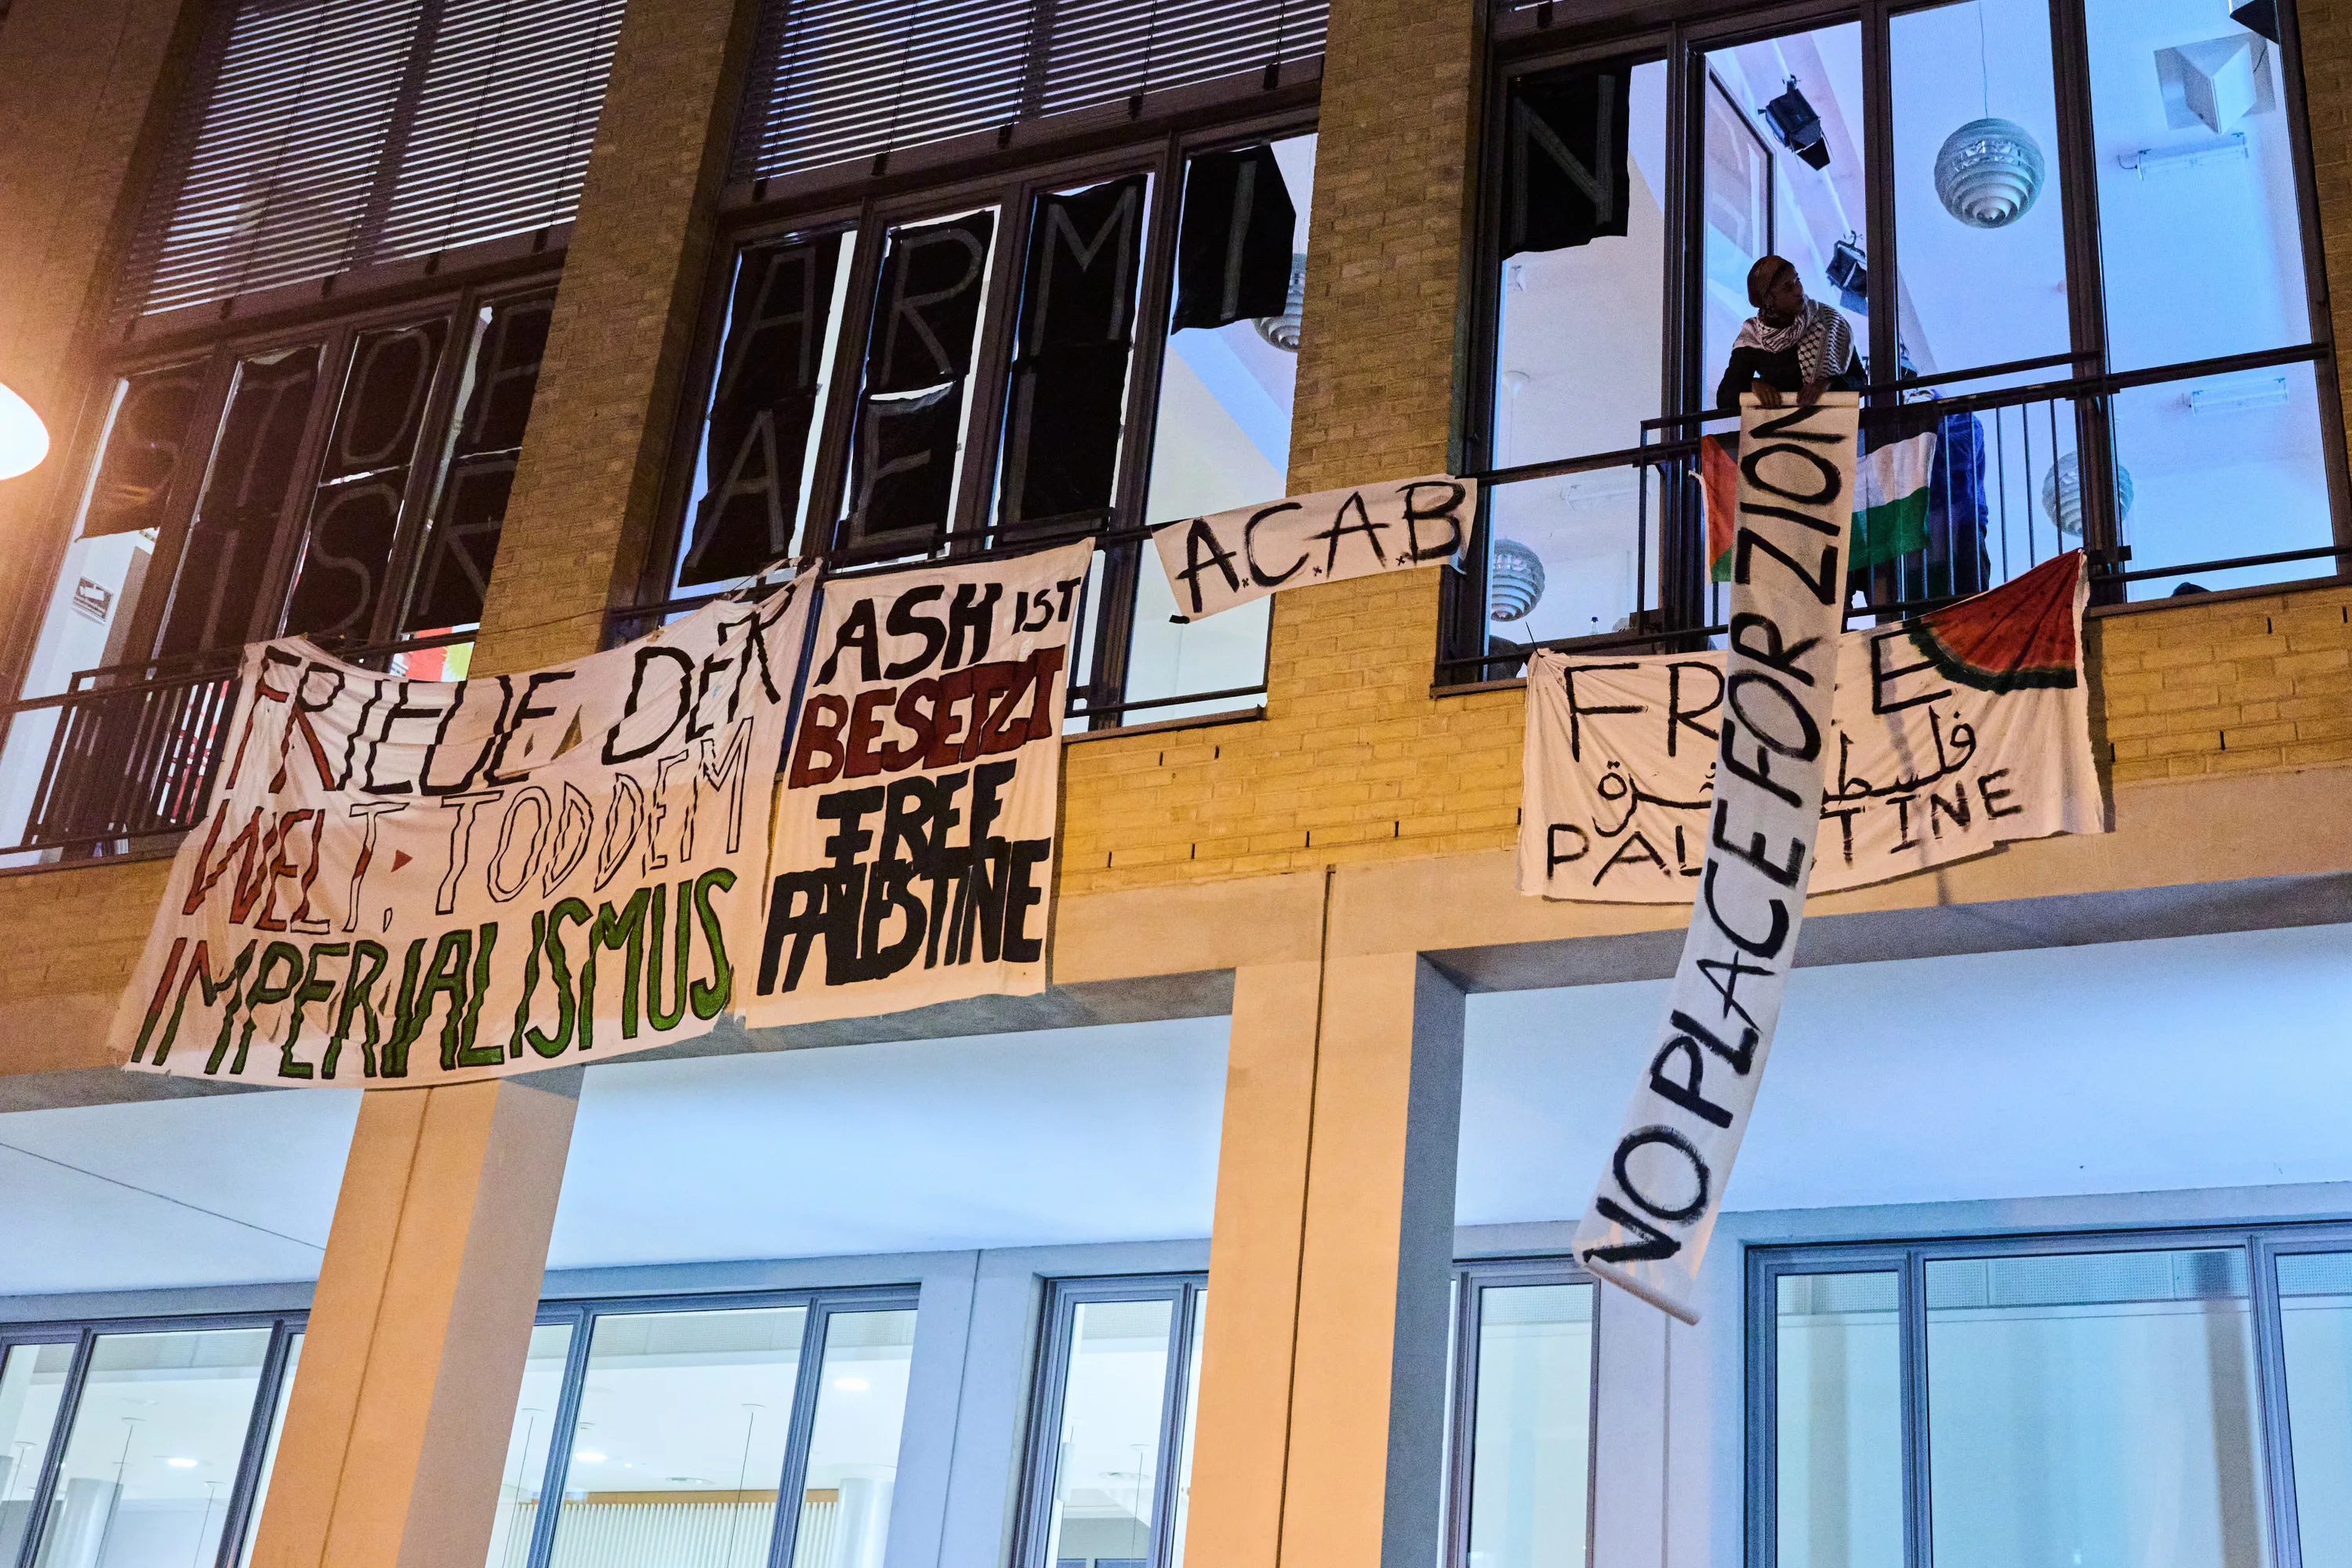 STOP ARMIN
ISRAEL
A.C.A.B
FRIEDE DER
WELT, TOD DEM
IMPERIALISMUS
ASH IST
BESETZT
FREE
PALESTINE
NO PLACE FOR ZION
FREE
فلسطين حرة
PALESTINE